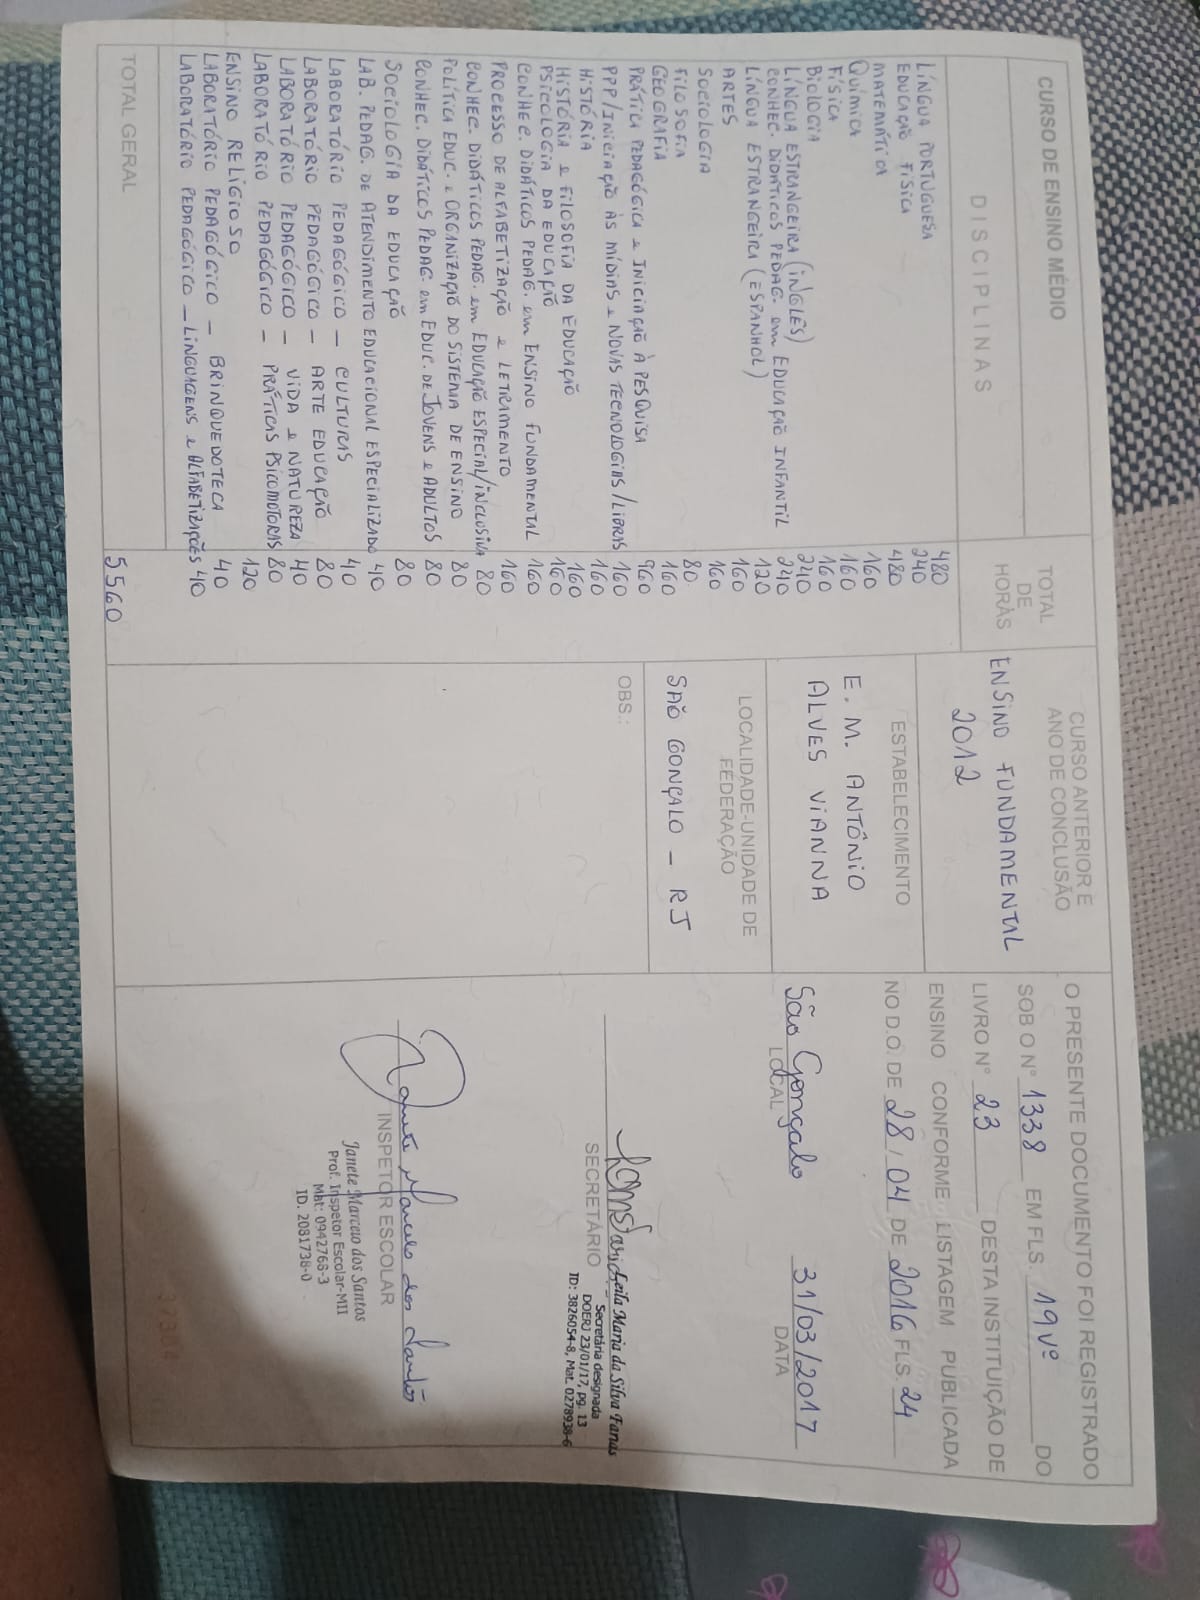 CURSO DE ENSINO MÉDIO
DISCIPLINAS
TOTAL DE HORAS
LÍNGUA PORTUGUESA 480
EDUCAÇÃO FÍSICA 240
MATEMÁTICA 480
QUÍMICA 160
FÍSICA 160
BIOLOGIA 160
LÍNGUA ESTRANGEIRA (INGLÊS) 240
CONHEC. DIDÁTICOS PEDAG. EM EDUCAÇÃO INFANTIL 240
LÍNGUA ESTRANGEIRA (ESPANHOL) 120
ARTES 160
SOCIOLOGIA 160
FILOSOFIA 80
GEOGRAFIA 160
PRÁTICA PEDAGÓGICA E INICIAÇÃO À PESQUISA 960
PPP/INICIAÇÃO ÀS MÍDIAS E NOVAS TECNOLOGIAS/LIBRAS 160
HISTÓRIA 160
HISTÓRIA E FILOSOFIA DA EDUCAÇÃO 160
PSICOLOGIA DA EDUCAÇÃO 160
CONHEC. DIDÁTICOS PEDAG. EM ENSINO FUNDAMENTAL 160
PROCESSO DE ALFABETIZAÇÃO E LETRAMENTO 160
CONHEC. DIDÁTICOS PEDAG. EM EDUCAÇÃO ESPECIAL/INCLUSIVA 80
POLÍTICA EDUC. E ORGANIZAÇÃO DO SISTEMA DE ENSINO 80
CONHEC. DIDÁTICOS PEDAG. EM EDUC. DE JOVENS E ADULTOS 80
SOCIOLOGIA DA EDUCAÇÃO 80
LAB. PEDAG. DE ATENDIMENTO EDUCACIONAL ESPECIALIZADO 40
LABORATÓRIO PEDAGÓGICO – CULTURAS 40
LABORATÓRIO PEDAGÓGICO – ARTE EDUCAÇÃO 80
LABORATÓRIO PEDAGÓGICO – VIDA E NATUREZA 40
LABORATÓRIO PEDAGÓGICO – PRÁTICAS PSICOMOTORAS 80
ENSINO RELIGIOSO 120
LABORATÓRIO PEDAGÓGICO – BRINQUEDOTECA 40
LABORATÓRIO PEDAGÓGICO – LINGUAGENS E ALFABETIZAÇÕES 40
TOTAL GERAL 5560
CURSO ANTERIOR E
ANO DE CONCLUSÃO
ENSINO FUNDAMENTAL
2012
ESTABELECIMENTO
E. M. ANTÔNIO
ALVES VIANNA
LOCALIDADE-UNIDADE DE
FEDERAÇÃO
SÃO GONÇALO – RJ
OBS.:
O PRESENTE DOCUMENTO FOI REGISTRADO
SOB O Nº 1338 EM FLS. 19vº DO
LIVRO Nº 23 DESTA INSTITUIÇÃO DE
ENSINO CONFORME LISTAGEM PUBLICADA
NO D.O. DE 28/04 DE 2016 FLS. 24
São Gonçalo 31/03/2017
LOCAL DATA
SECRETÁRIO
Leila Maria da Silva Farias
Secretária designada
DOERJ 23/01/17, pg. 13
ID: 3826054-8, Mat. 0278938-6
Janete Marcelo dos Santos
INSPETOR ESCOLAR
Janete Marcelo dos Santos
Prof. Inspetor Escolar-MII
Mat: 0942768-3
ID. 2081738-0